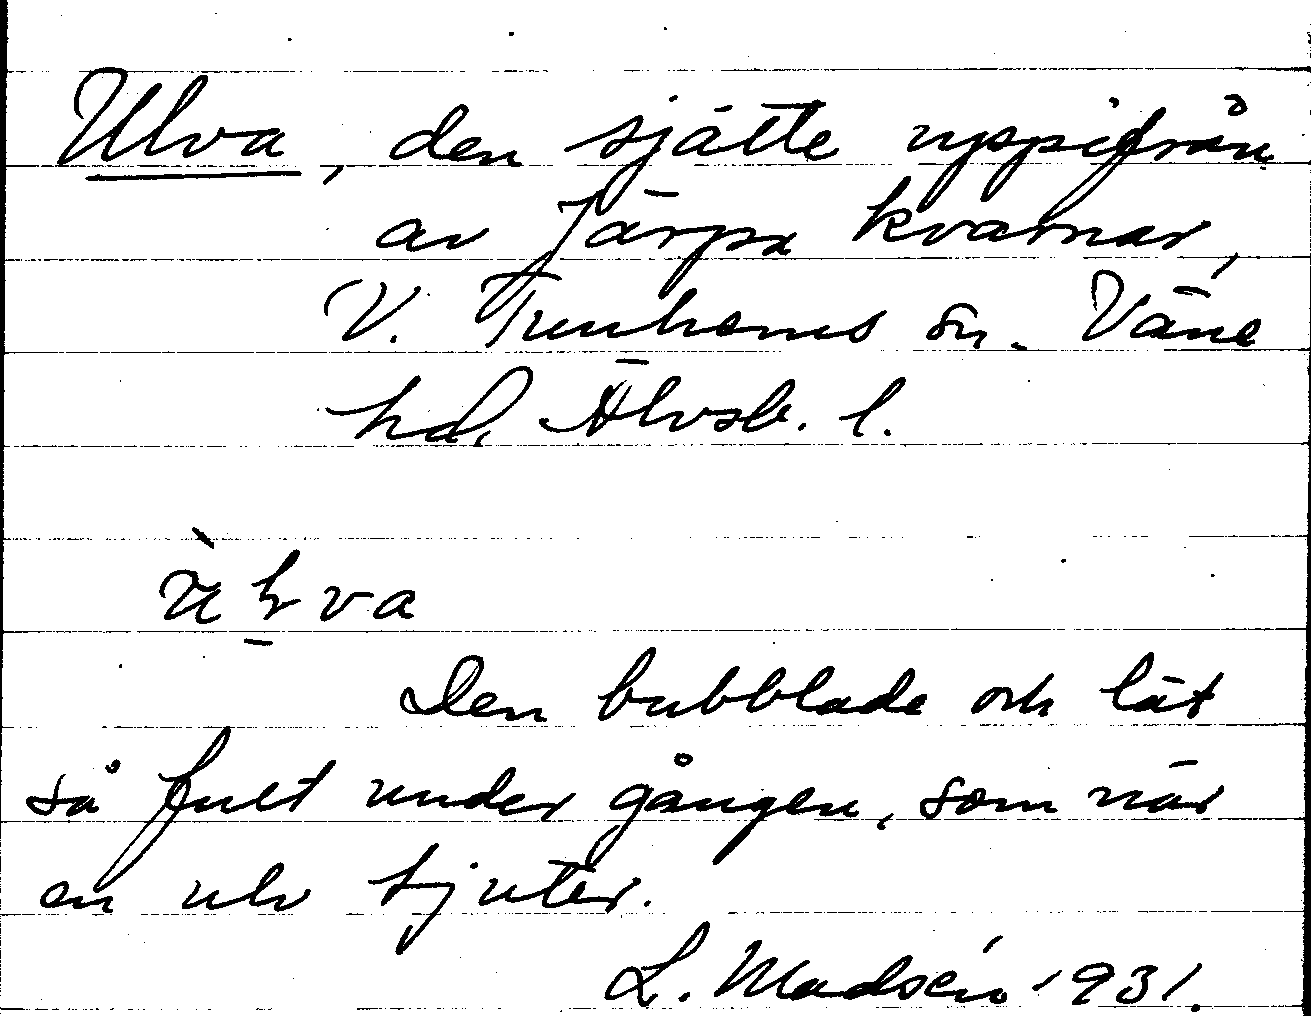 Ulva, den sjätte uppifrån
av Järpa kvarnar,
V. Tunhems sn. Väne
hd, Älvsb. l.
Den bubblade och lät
så fult under gången, som när
en ulv tjuter.
L. Madsén 1931.